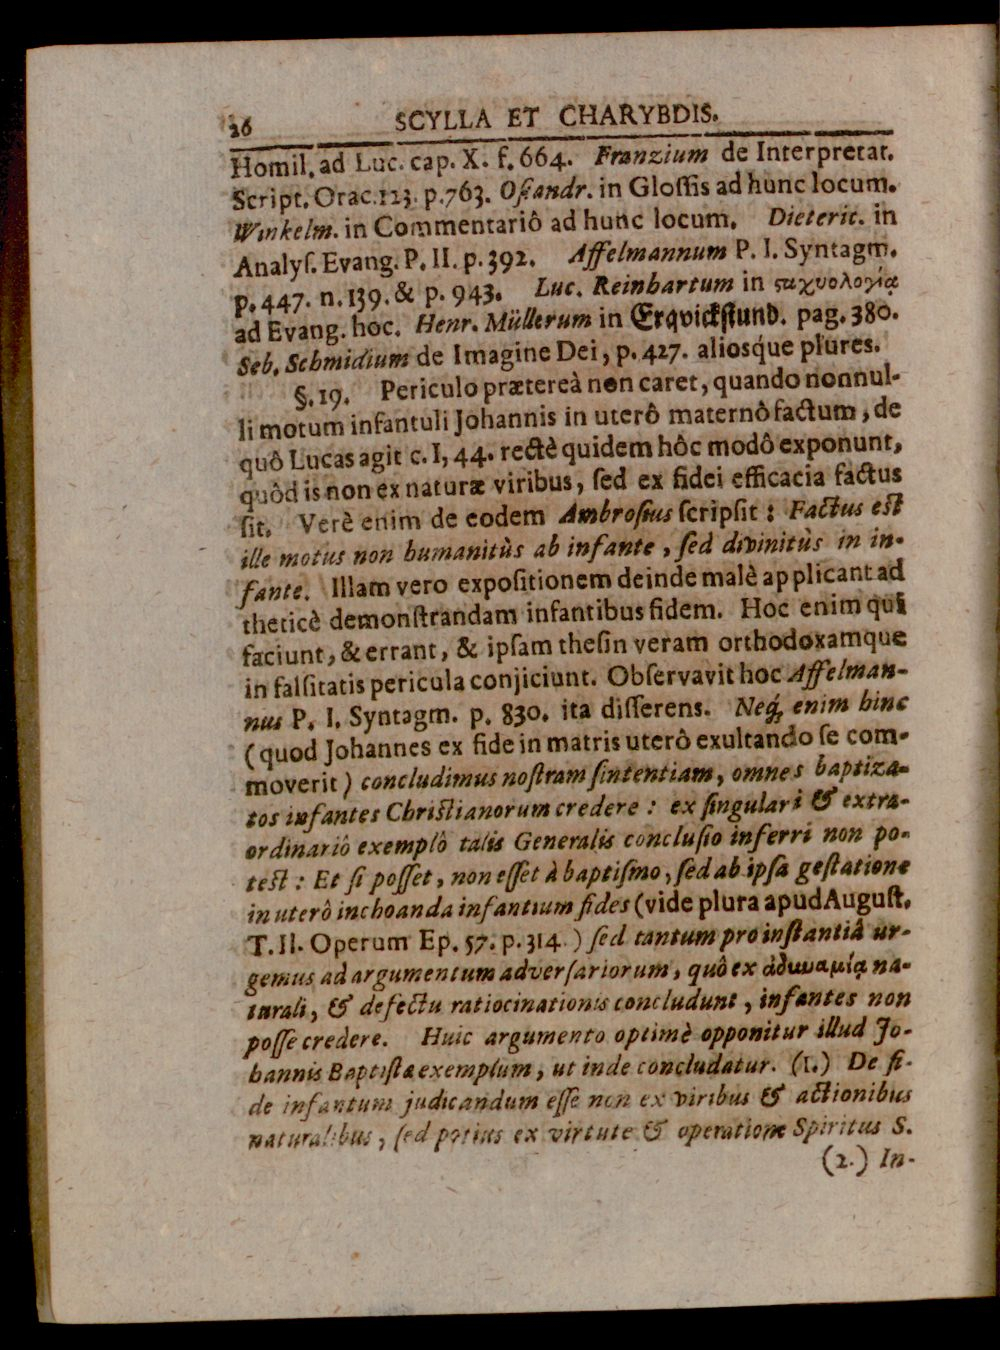 26 SCYLLA ET CHARYBDIS.
Homil. ad Luc. cap. X. f. 664. Franzium de Interpretat.
Script. Orac. 123. p. 763. Osiandr. in Glossis ad hunc locum.
Winkelm. in Commentariô ad hunc locum. Dieteric. in
Analys. Evang. P. II. p. 392. Affelmannum P. I. Syntagm.
p. 447. n. 139. & p. 943. Luc. Reinhartum in ϛαχυολογίᾳ
ad Evang. hoc. Henr. Müllerum in Erqvickstund. pag. 380.
Seb. Schmidium de Imagine Dei, p. 427. aliosq́ue plures.
§. 19. Periculo prætereà non caret, quando nonnul-
li motum infantuli Johannis in uterô maternô factum, de
quô Lucas agit c. I, 44. rectè quidem hôc modô exponunt,
quôd is non ex naturæ viribus, sed ex fidei efficacia factus
sit. Verè enim de eodem Ambrosius scripsit: Factus est
ille motus non humanitùs ab infante, sed divinitùs in in-
fante. Illam vero expositionem deinde malè applicant ad
theticè demonstrandam infantibus fidem. Hoc enim qui
faciunt, & errant, & ipsam thesin veram orthodoxamque
in falsitatis pericula conjiciunt. Observavit hoc Affelman-
nus P. I. Syntagm. p. 830. ita disserens. Neq́; enim hinc
(quod Johannes ex fide in matris uterô exultando se com-
moverit) concludimus nostram sintentiam, omnes baptiza-
tos infantes Christianorum credere: ex singulari & extra-
ordinariô exemplô talis Generalis conclusio inferri non po-
test: Et si posset, non esset à baptismo, sed ab ipsa gestatione
in uterô inchoanda infantium fides (vide plura apud August.
T. II. Operum Ep. 57. p. 314.) sed tantum pro instantiâ ur-
gemus ad argumentum adversariorum, quô ex ἀδυναμίᾳ na-
turali, & defectu ratiocinationis concludunt, infantes non
posse credere. Huic argumento optimè opponitur illud Jo-
hannis Baptistæ exemplum, ut inde concludatur. (1.) De fi-
de infantum judicandum esse non ex viribus & actionibus
naturalibus, sed potius ex virtute & operatione Spiritus S.
(2.) In-